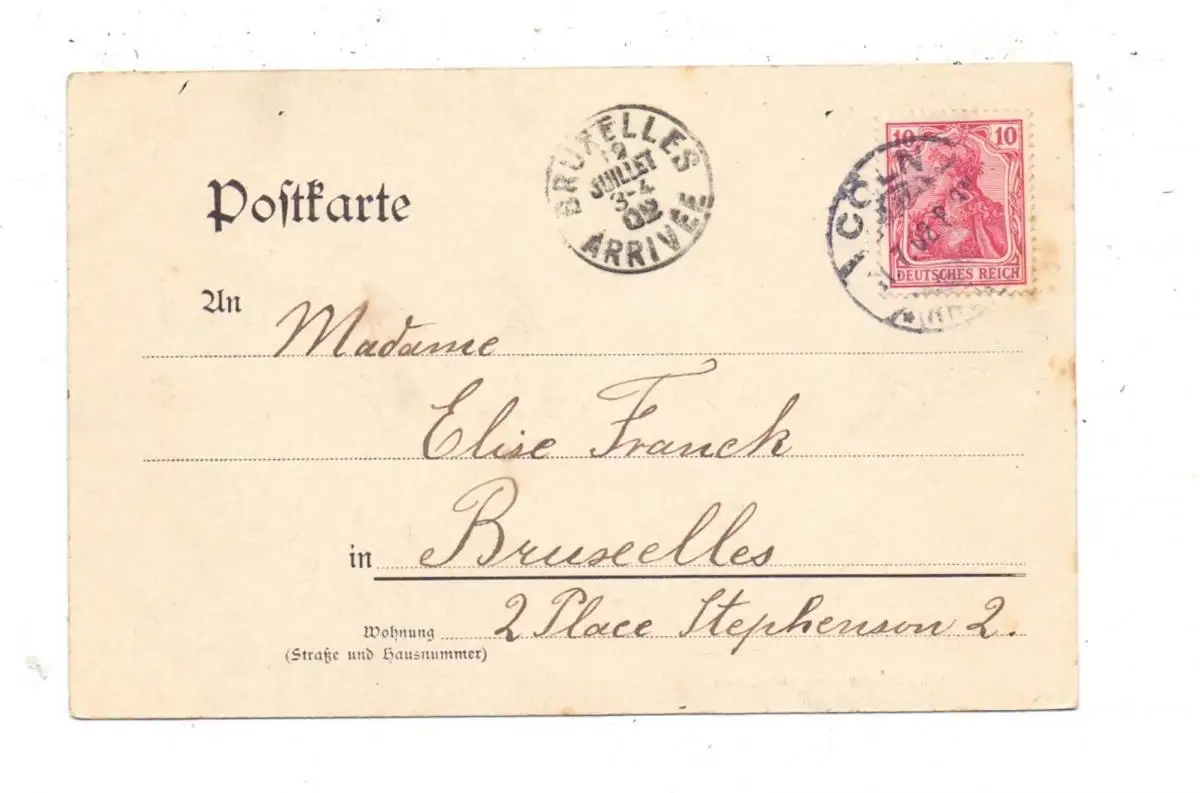 Postkarte
BRUXELLES
12
JUILLET
3-4
02
ARRIVEE
10 10
CÖLN
DEUTSCHES REICH
An Madame
Elise Franck
in Bruxelles
Wohnung 2 Place Stephenson 2.
(Straße und Hausnummer)